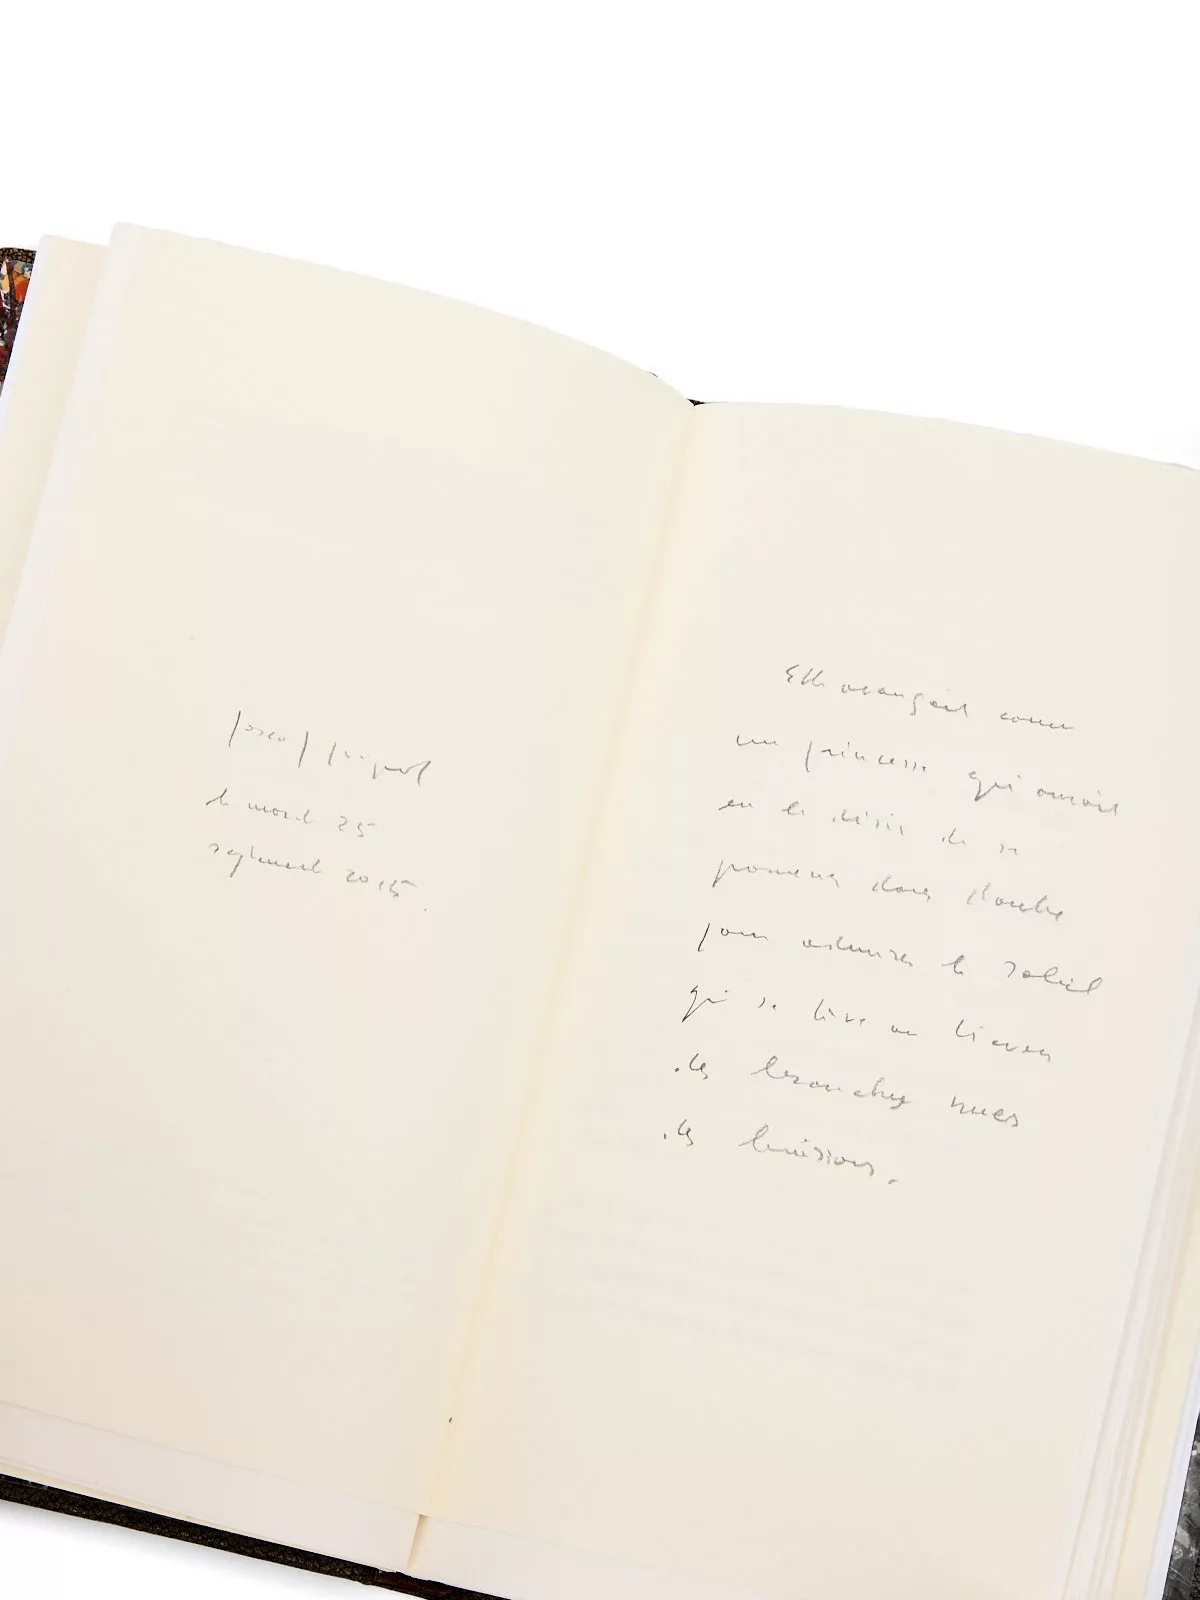 pascal quignard
le 25
septembre 2015.
Elle avançait comme
une princesse qui aurait
eu le désir de se
promener dans l'aube
pour admirer le soleil
qui se lève au travers
des branches nues
des buissons.